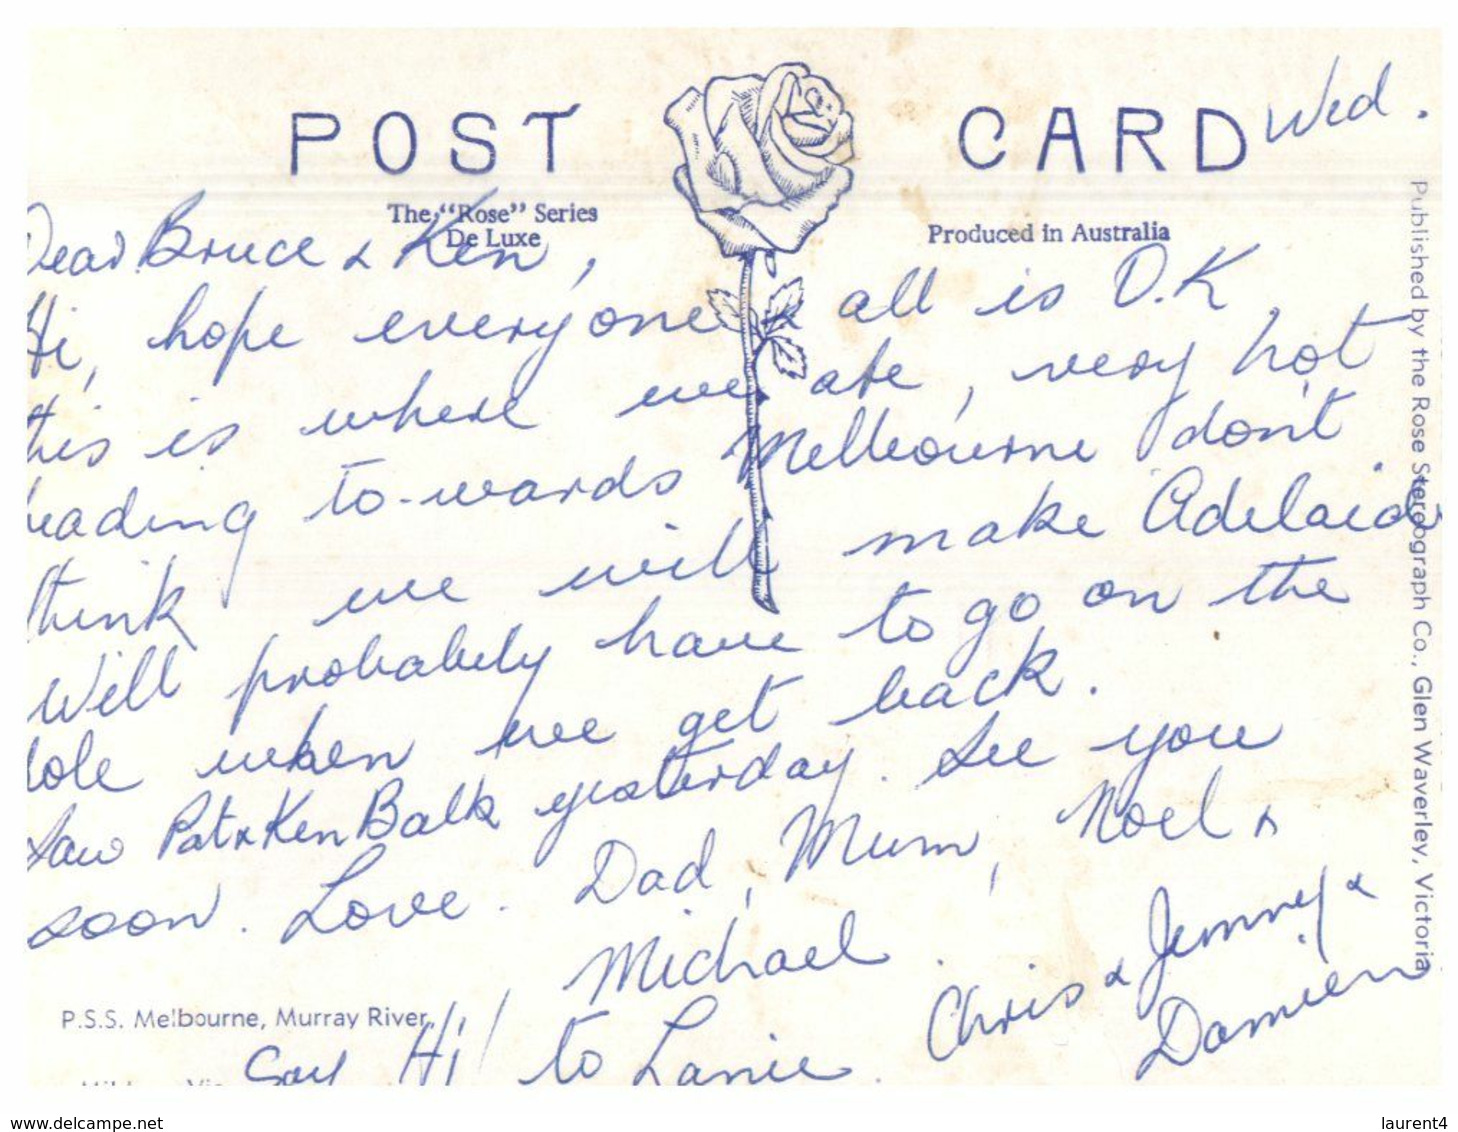 POST CARD Wed.
The "Rose" Series
De Luxe
Produced in Australia
Dear Bruce & Ken,
Hi, hope everyone & all is O.K,
this is where we are, very hot
heading to-wards Melbourne don't
think we will make Adelaide
Will probably have to go on the
dole when we get back.
Saw Pat & Ken Balk yesterday. See you
soon. Love. Dad, Mum, Noel &
Michael.
Chris & Jenny &
Damien
P.S.S. Melbourne, Murray River,
Say Hi! to Lanie.
Published by the Rose Stereograph Co., Glen Waverley, Victoria
www.delcampe.net
laurent4